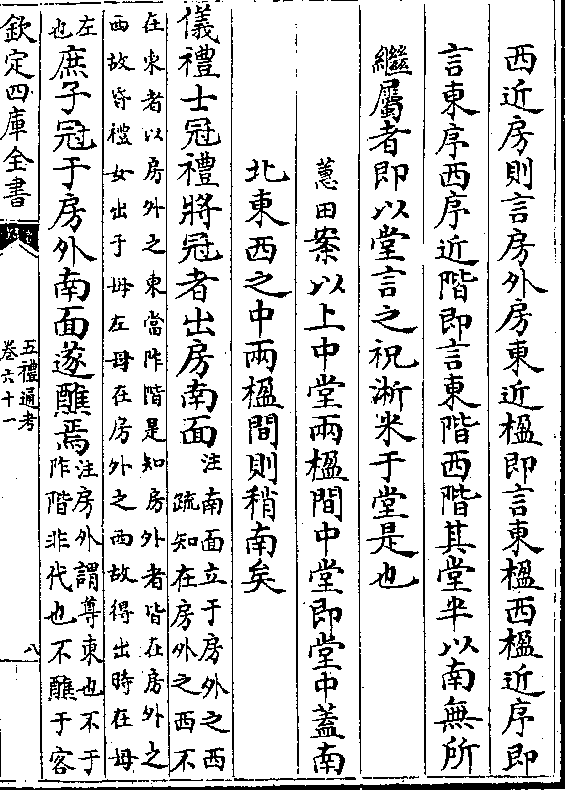 西近房則言房外房東近楹即言東楹西楹近序即
言東序西序近階即言東階西階其堂半以南無所
繼屬者即以堂言之祝淅米于堂是也
蕙田案以上中堂兩楹間中堂即堂中蓋南
北東西之中兩楹間則稍南矣
儀禮士冠禮將冠者出房南面
注南面立于房外之西
疏知在房外之西不
在東者以房外之東當阼階是知房外者皆在房外之
西故昏禮女出于母左母在房外之西故得出時在母
左
也
庶子冠于房外南面遂醮焉
注房外謂尊東也不于
阼階非代也不醮于客
欽定四庫全書
五禮通考
卷六十一
八